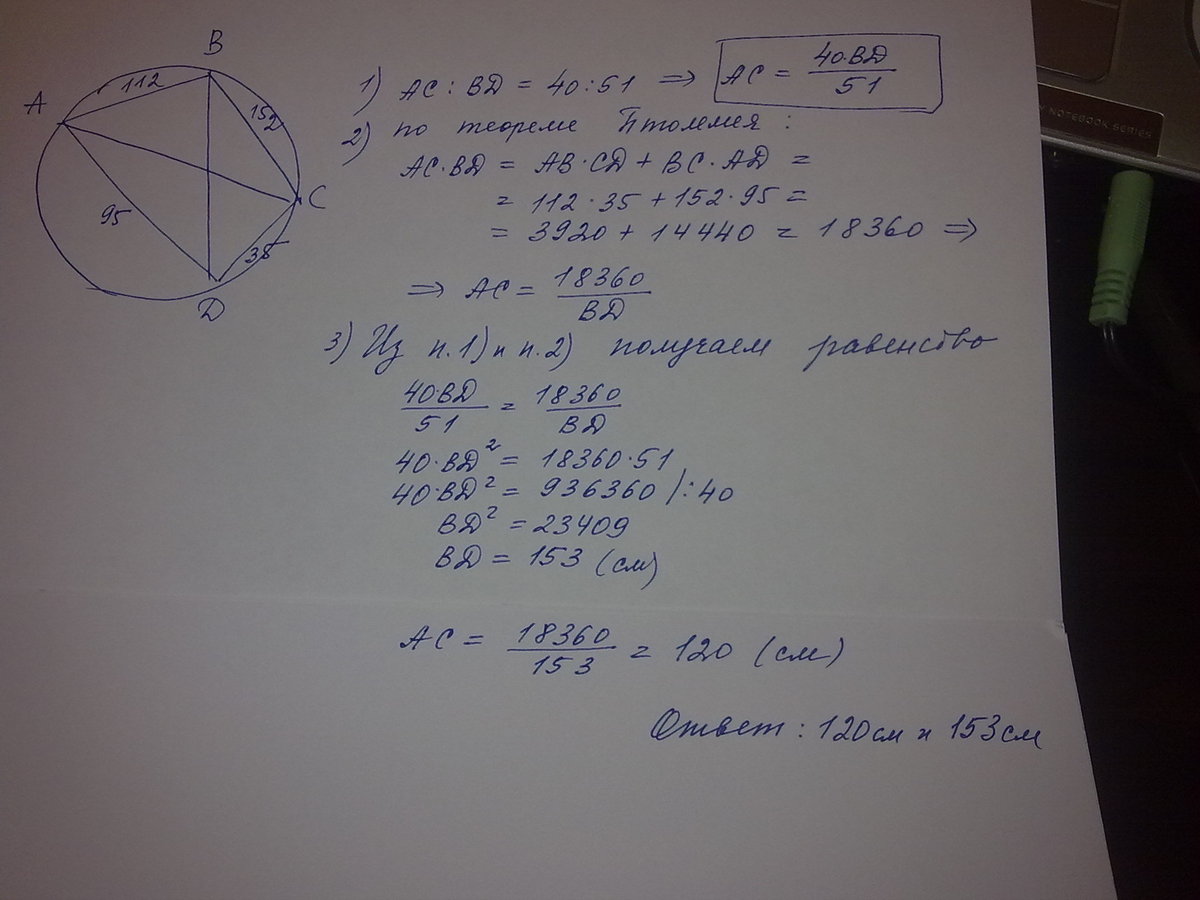 B
A
112
152
C
95
35
D
1) AC : BD = 40 : 51 ⇒ AC = 40·BD / 51
2) по теореме Птолемея :
AC·BD = AB·CD + BC·AD =
= 112·35 + 152·95 =
= 3920 + 14440 = 18360 ⇒
⇒ AC = 18360 / BD
3) Из п.1) и п.2) получаем равенство
40·BD / 51 = 18360 / BD
40·BD² = 18360·51
40·BD² = 936360 /:40
BD² = 23409
BD = 153 (см)
AC = 18360 / 153 = 120 (см)
Ответ : 120см и 153см
NOTEBOOK SERIES